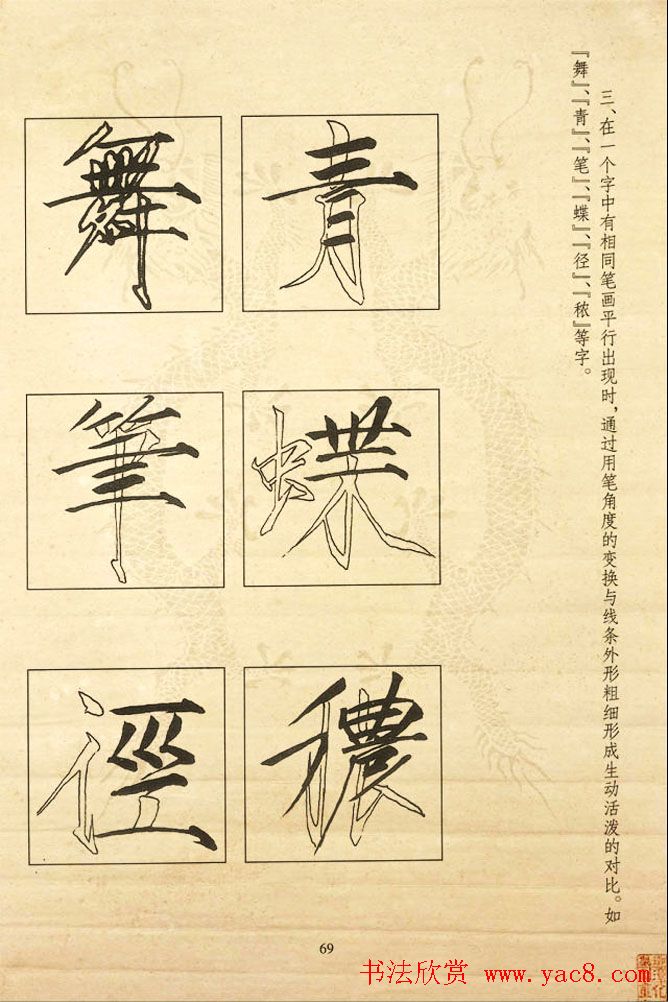 三、在一个字中有相同笔画平行出现时，通过用笔角度的变换与线条外形粗细形成生动活泼的对比。如
『舞』、『青』、『笔』、『蝶』、『径』、『秾』等字。
舞 青
筆 蝶
徑 穠
69
书法欣赏 www.yac8.com